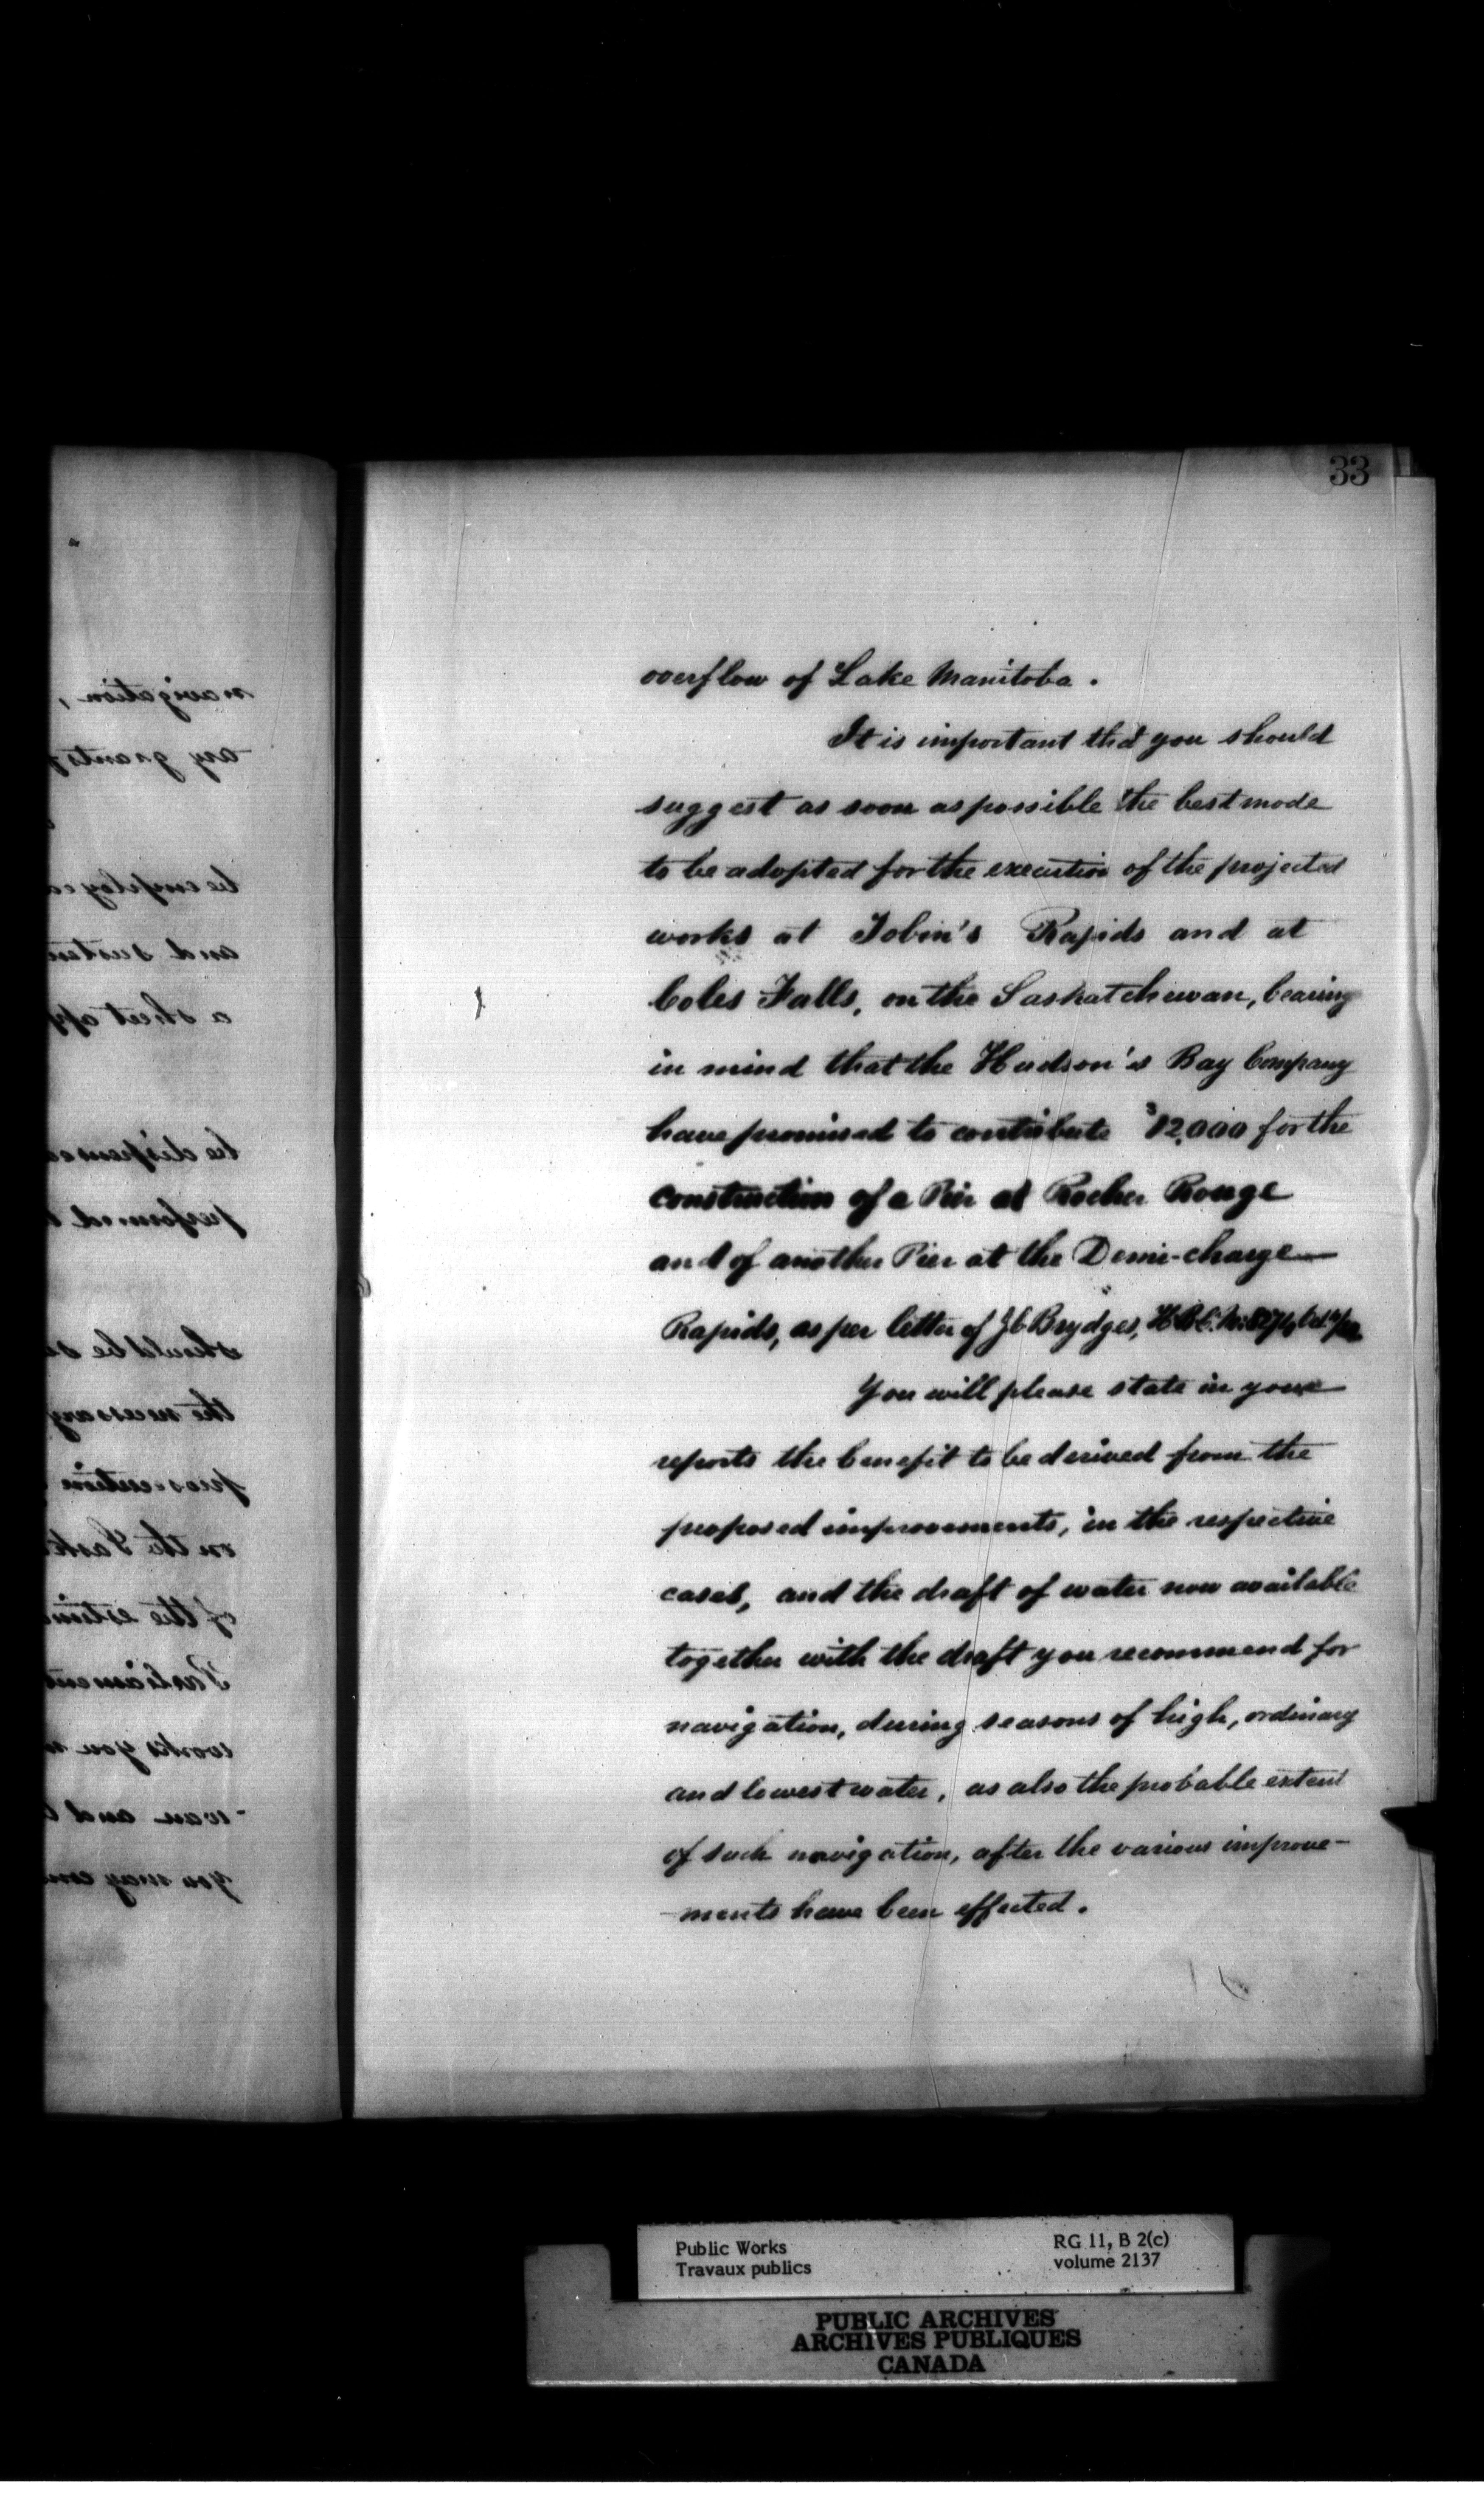 33
overflow of Lake Manitoba.
It is important that you should
suggest as soon as possible the best mode
to be adopted for the execution of the projected
works at Tobin's Rapids and at
Coles Falls, on the Saskatchewan, bearing
in mind that the Hudson's Bay Company
have promised to contribute $12,000 for the
construction of a Pier at Rocher Rouge
and of another Pier at the Demi-charge
Rapids, as per letter of Brydges, H.B.C.
You will please state in your
reports the benefit to be derived from the
proposed improvements, in the respective
cases, and the draft of water now available
together with the draft you recommend for
navigation, during seasons of high, ordinary
and lowest water, as also the probable extent
of such navigation, after the various improve-
-ments have been effected.
navigation,
any grants
be employed
and
a sheet
be dispensed
performed
should be
the necessary
prosecution
on the
of the
Parliament
works you
-wan and
you may
Public Works
Travaux publics
RG 11, B 2(c)
volume 2137
PUBLIC ARCHIVES
ARCHIVES PUBLIQUES
CANADA